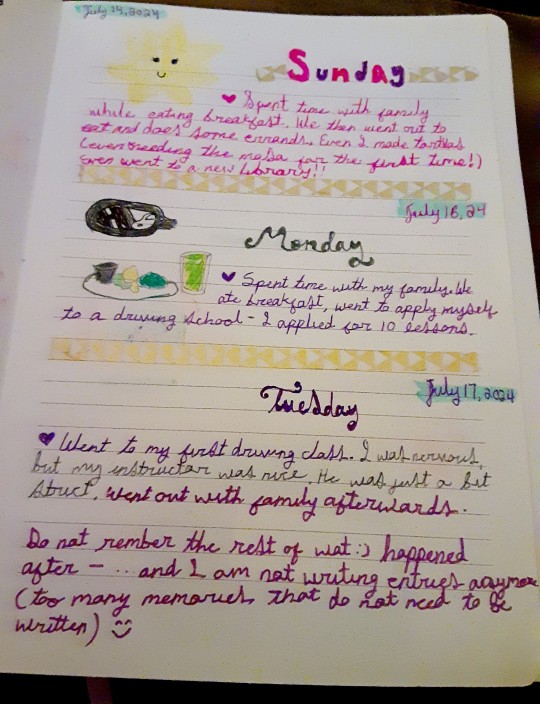 July 14, 2024
Sunday
Spent time with family
while eating breakfast. We then went out to
eat and does some errands. Even I made tortillas
(even kneading the masa for the first time!)
Even went to a new library!!
July 16, 24
Monday
Spent time with my family. We
ate breakfast, went to apply myself
to a driving school - I applied for 10 lessons.
July 17, 2024
Tuesday
Went to my first driving class. I was nervous,
but my instructor was nice. He was just a bit
strict. Went out with family afterwards.
Do not rember the rest of wat :) happened
after - ... and I am not writing entries anymore
(too many memories that do not need to be
written) :)